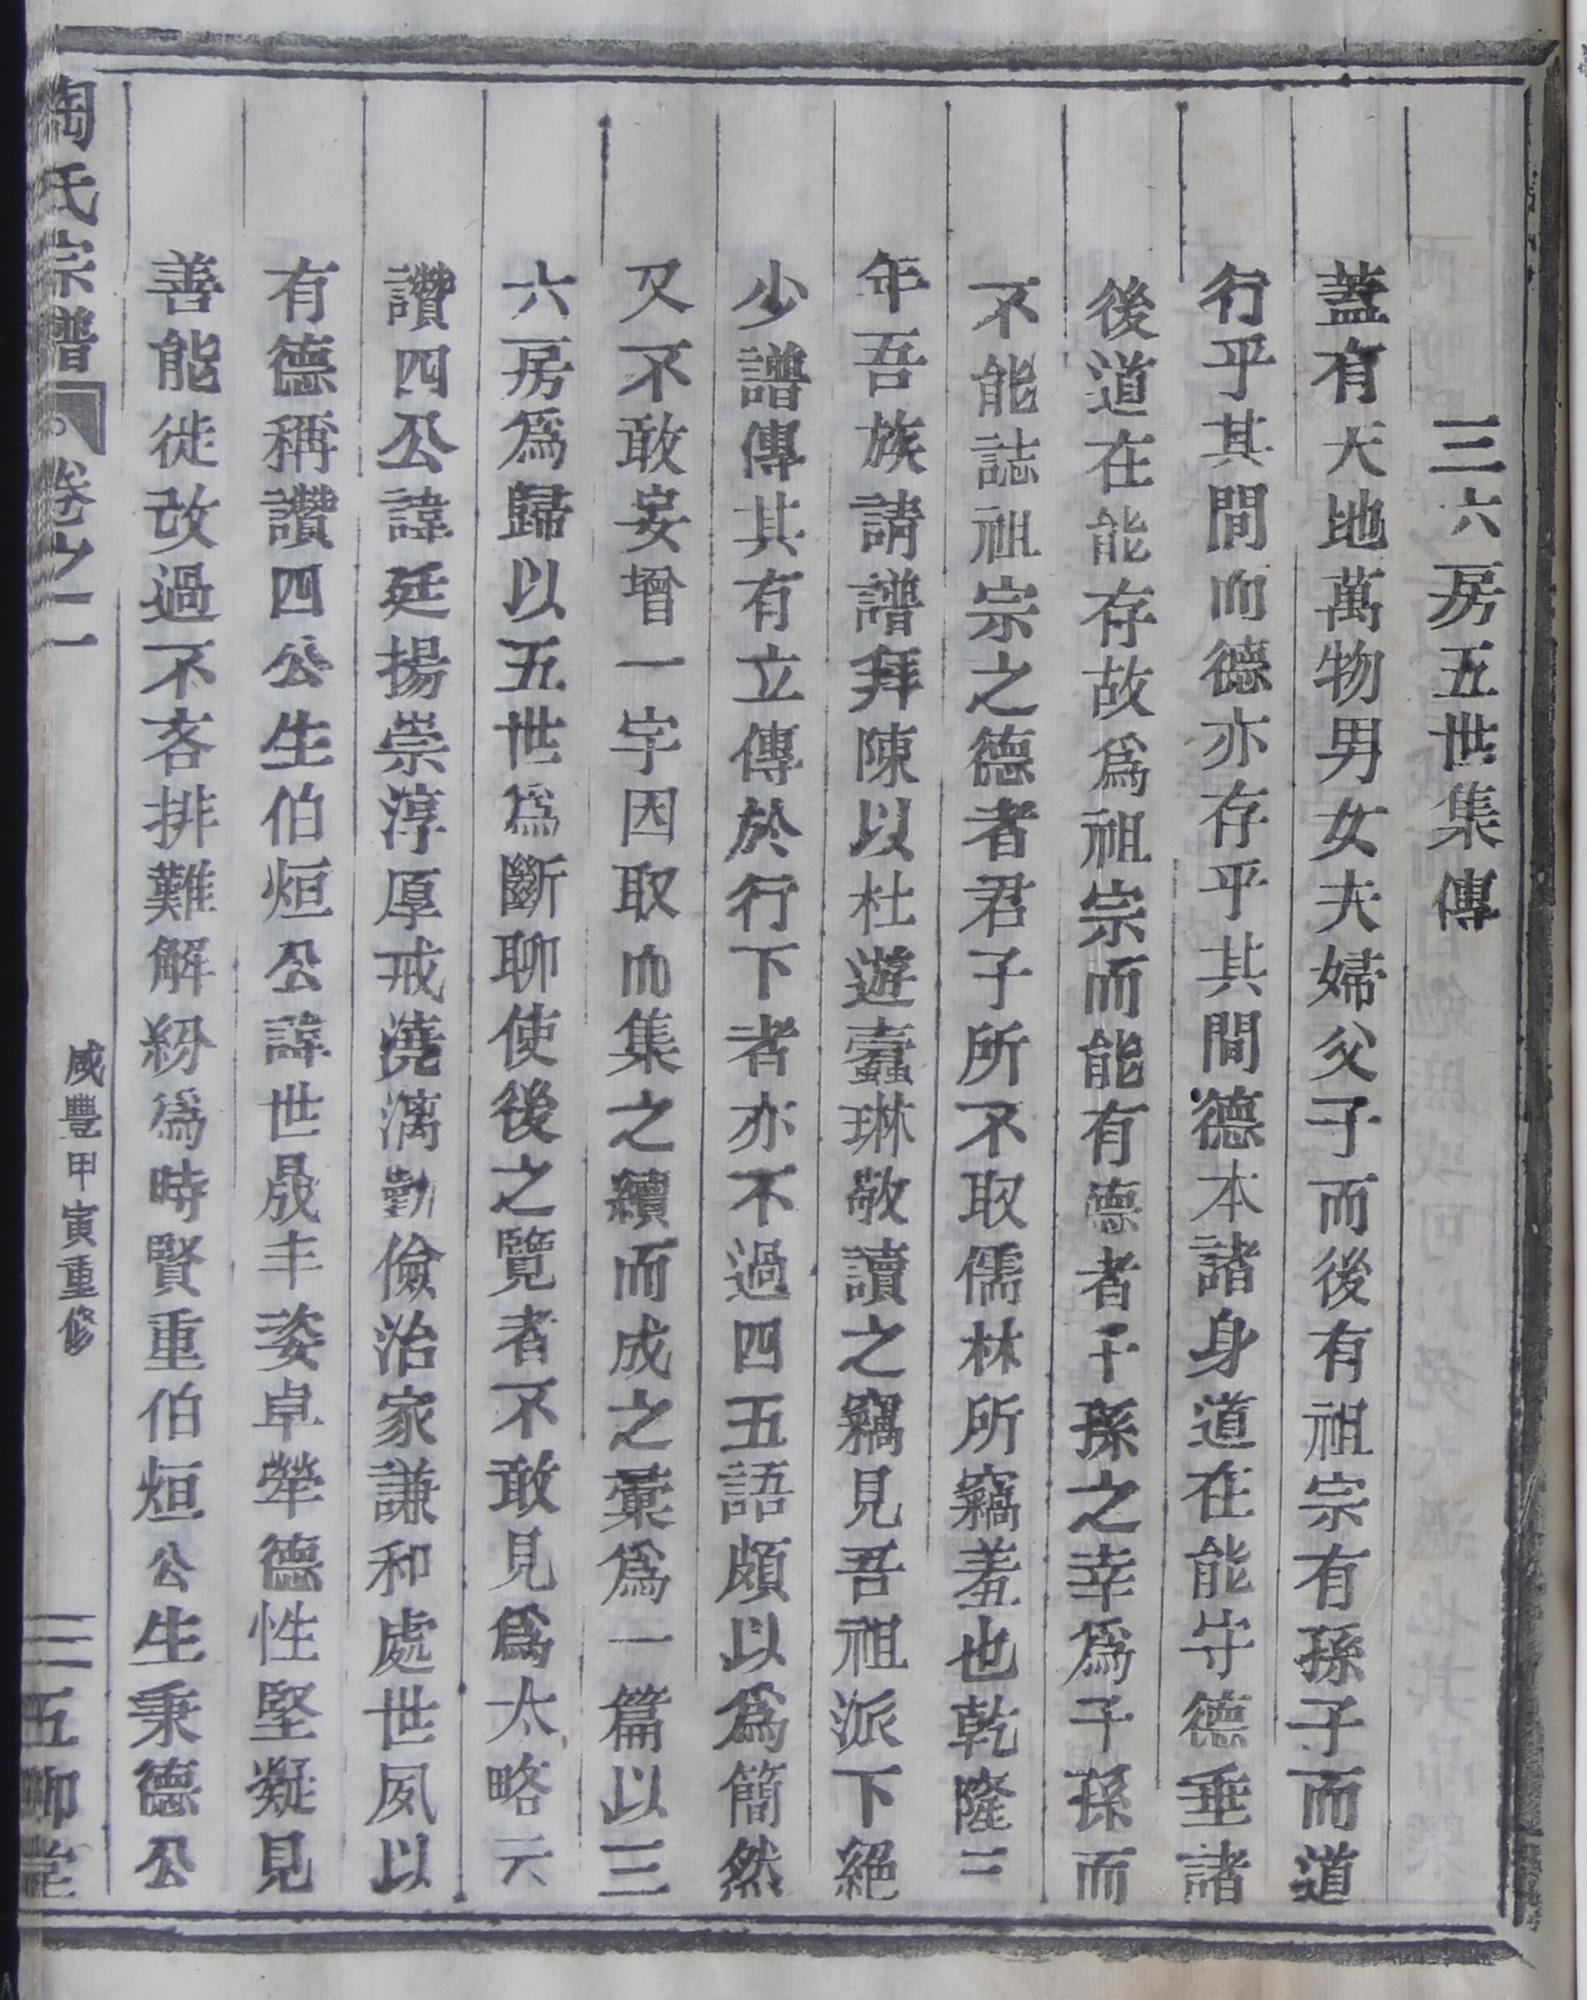 三六房五世集傳
蓋有天地萬物男女夫婦父子而後有祖宗有孫子而道
行乎其間而德亦存乎其間德本諸身道在能守德垂諸
後道在能存故爲祖宗而能有德者子孫之幸爲子孫而
不能誌祖宗之德者君子所不取儒林所竊羞也乾隆三
年吾族請譜拜陳以杜遊蠧琳敬讀之竊見吾祖派下絕
少譜傳其有立傳於行下者亦不過四五語頗以爲簡然
又不敢妄增一字因取而集之續而成之彙爲一篇以三
六房爲歸以五世爲斷聊使後之覽者不敢見爲太略云
讚四公諱延揚崇淳厚戒澆漓勤儉治家謙和處世夙以
有德稱讚四公生伯烜公諱世晟丰姿卓犖德性堅凝見
善能徙改過不吝排難解紛爲時賢重伯烜公生秉德公
陶氏宗譜 卷之二 咸豐甲寅重修 三 五柳堂